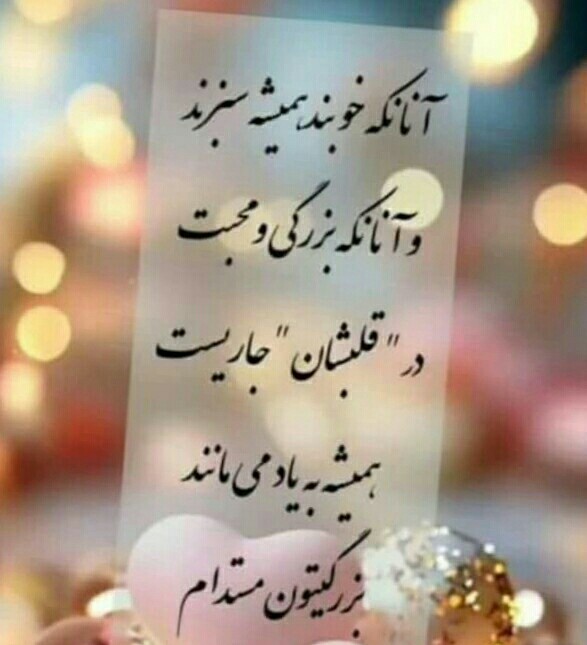 آنانکه خوبند همیشه سبزند
و آنانکه بزرگی و محبت
در "قلبشان" جاریست
همیشه به یاد می مانند
بزرگیتون مستدام